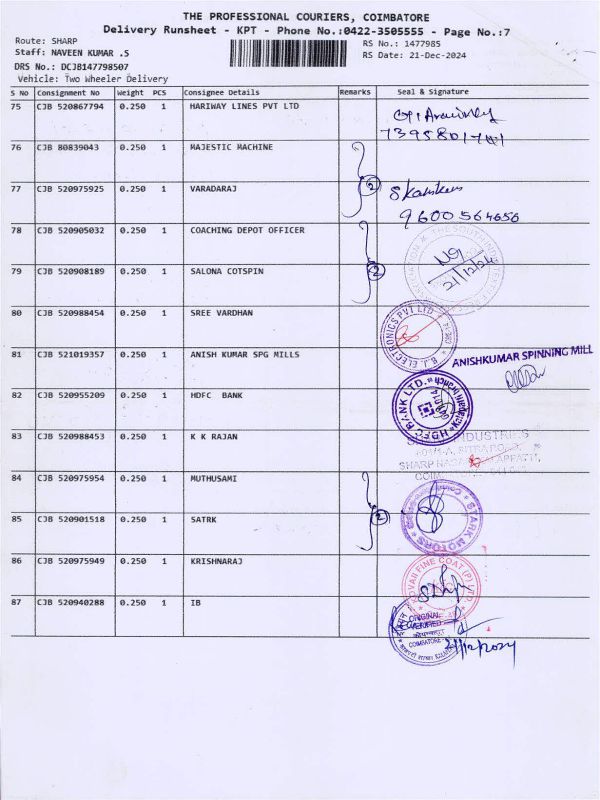 THE PROFESSIONAL COURIERS, COIMBATORE
Delivery Runsheet - KPT - Phone No.:0422-3505555 - Page No.:7
Route: SHARP
RS No.: 1477985
Staff: NAVEEN KUMAR .S
RS Date: 21-Dec-2024
DRS No.: DCJB147798507
Vehicle: Two Wheeler Delivery
S No Consignment No Weight PCS Consignee Details Remarks Seal & Signature
75 CJB 520867794 0.250 1 HARIWAY LINES PVT LTD
76 CJB 80839043 0.250 1 MAJESTIC MACHINE
2
77 CJB 520975925 0.250 1 VARADARAJ
9600564656
78 CJB 520905032 0.250 1 COACHING DEPOT OFFICER
21/12/24
79 CJB 520908189 0.250 1 SALONA COTSPIN
2
80 CJB 520988454 0.250 1 SREE VARDHAN
ELECTRONICS PVT LTD
81 CJB 521019357 0.250 1 ANISH KUMAR SPG MILLS
ANISHKUMAR SPINNING MILL
82 CJB 520955209 0.250 1 HDFC BANK
HDFC BANK LTD.
83 CJB 520988453 0.250 1 K K RAJAN
INDUSTRIES
84 CJB 520975954 0.250 1 MUTHUSAMI
85 CJB 520901518 0.250 1 SATRK
2
STARK MOTORS
86 CJB 520975949 0.250 1 KRISHNARAJ
FINE COAT (P) LTD.
87 CJB 520940288 0.250 1 IB
ORIGINAL
COIMBATORE